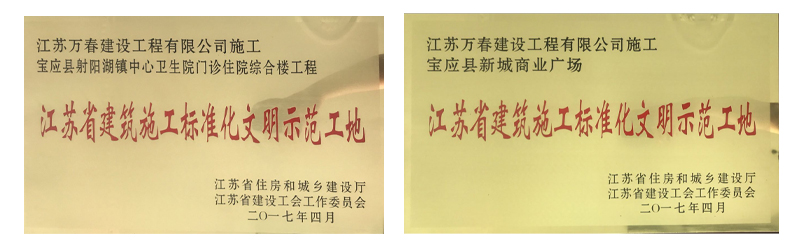 江苏万春建设工程有限公司施工
宝应县射阳湖镇中心卫生院门诊住院综合楼工程
江苏省建筑施工标准化文明示范工地
江苏省住房和城乡建设厅
江苏省建设工会工作委员会
二〇一七年四月
江苏万春建设工程有限公司施工
宝应县新城商业广场
江苏省建筑施工标准化文明示范工地
江苏省住房和城乡建设厅
江苏省建设工会工作委员会
二〇一七年四月